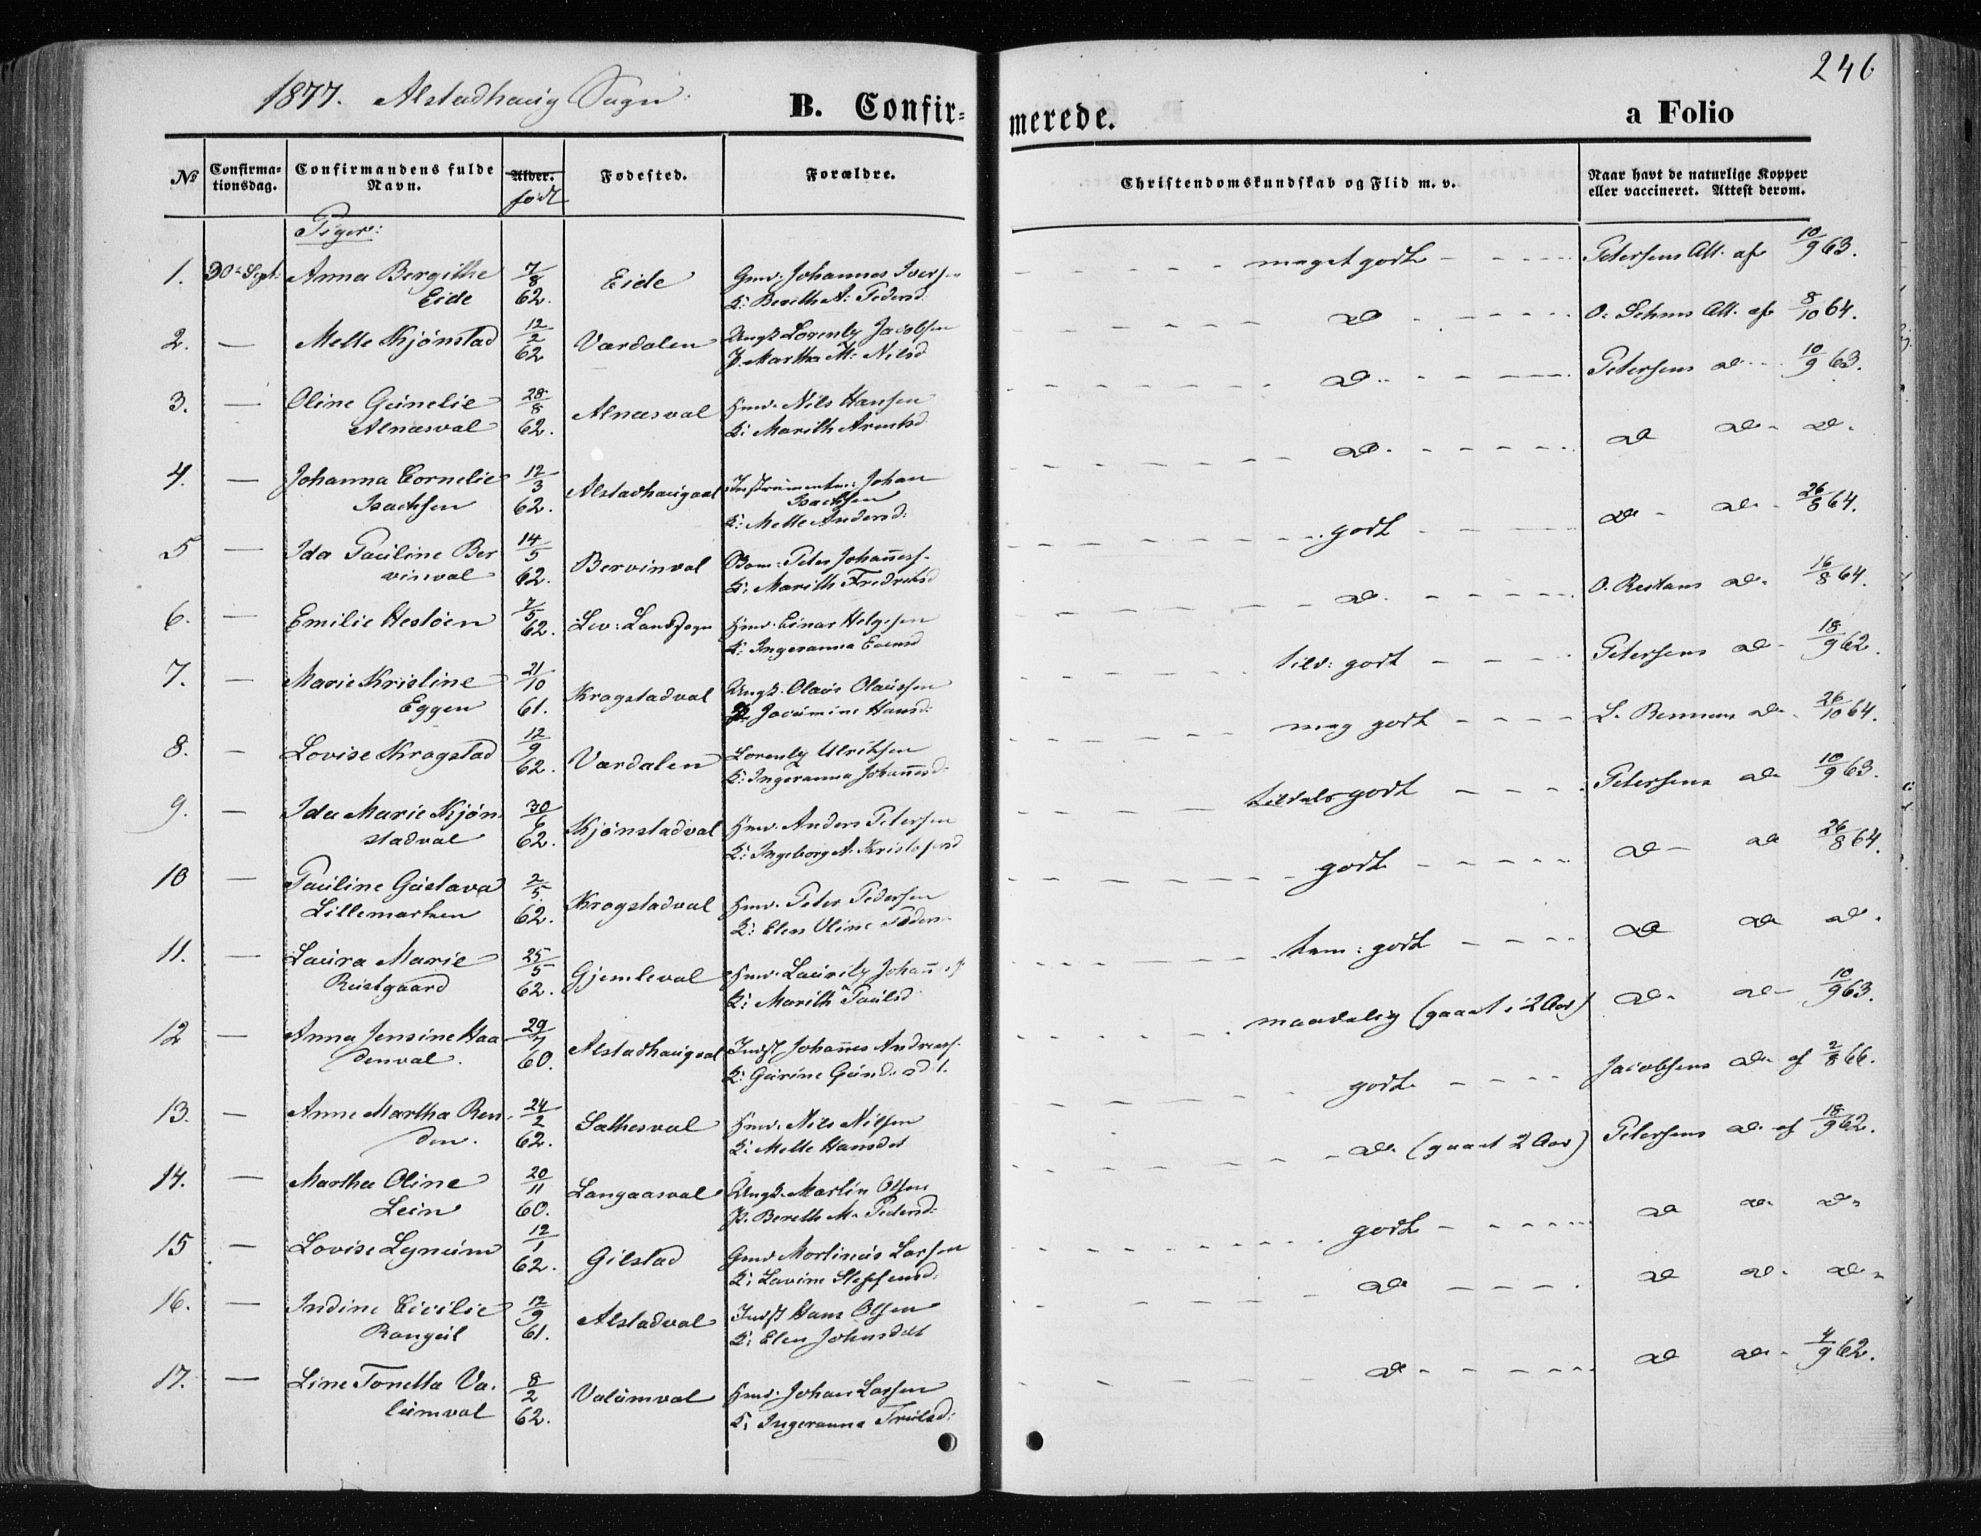 246
1877. Alstadhaug Sogn.
B. Confirmerede.
a Folio
№ Confirmationsdag. Confirmandens fulde Navn. Alder. født Fødested. Forældre. Christendomskundskab og Flid m. v. Naar havt de naturlige Kopper eller vaccineret. Attest derom.
Piger:
1. 30te Sept. Anna Bergithe Eide 7/8 62. Eide Gmd. Johannes Iversen K: Berith A: Pedersd. meget godt Petersens Att. af 10/9 63.
2. — Mette Kjønstad 12/2 62 Værdalen Ungk. Lorentz Jacobsen P. Martha M: Nilsd. do O. Sehms Att. af 8/10 64.
3. — Oline Gunelie Alnæsval 28/8 62. Alnæsval Hmd. Nils Hansen K: Marith Arntsd. do Petersens do 10/9 63.
4. — Johanna Cornelie Isachsen 12/3 62. Alstadhaugval Instrumentm: Johan Isachsen K: Mette Andersd: do do do do
5 — Ida Pauline Bervinval 14/5 62. Bervinval Bom: Peter Johanness. K: Marith Fredriksd godt do do 26/8 64.
6. — Emilie Hesløen 7/5 62. Lev: Landsogn Hmd. Einar Helgesen K: Ingeranna Evensd do O. Restans do 16/8 64.
7. — Marie Kristine Eggen 21/10 61. Kragstadval Ungk. Olaus Olaussen P. Jocumine Hansd: tilds: godt Petersens do 18/9 62.
8. — Lovise Kragstad 12/9 62. Værdalen Lorentz Ulriksen K: Ingeranna Johannesd. meg godt L. Bennum do 26/10 64.
9. — Ida Marie Kjønstadval 30/6 62. Kjønstadval Hmd. Anders Petersen K: Ingeborg A. Kristofersd tildels godt Petersens do 10/9 63.
10 — Pauline Gustava Lillemarken 2/5 62. Kragstadval Hmd. Peter Pedersen K: Elen Oline Peders. godt do do 26/8 64.
11. — Laura Marie Rustgaard 25/5 62. Gjemleval Hmd. Lauritz Johannes K: Marith Paulsd tem: godt do do do
12 — Anna Jensine Haadenval. 29/7 60. Alstadhaugval Indst Johannes Andreass. K: Gurine Gund. maadelig (gaaet i 2 Aar) do do 10/9 63.
13. — Anne Martha Renden. 24/2 62. Sæthesval Hmd. Nils Nilsen K: Mette Hansdat godt Jacobsens do af 2/8 66.
14. — Martha Oline Lein 20/11 60. Langaasval Ungk. Martin Olsen P. Bereth M. Pedersd: do (gaaet 2 Aar) Petersens do af 18/9 62.
15 — Lovise Lynum 12/1 62. Gilstad Gmd Mortinus Larsen K: Lavine Steffensd. godt do do do
16. — Indine Cicilie Rangul 12/9 61. Alstadval Indst Hans Olsen K: Elen Johnsdat do do do do
17. — Line Tonetta Valumval 8/2 62. Valumval Hmd. Johan Larsen K: Ingeranna Trulsd: do do do 4/9 62.